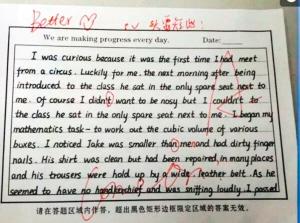 Better
We are making progress every day. Date:
I was curious because it was the first time I had meet
from a circus. Luckily for me. the next morning after being
introduced to the class he sat in the only spare seat next to
me. Of course I didn't want to be nosy but I couldn't to
the class he sat in the only spare seat next to me. I began my
mathematics task- to work out the cubic volume of various
boxes. I noticed Jake was smaller than me and had dirty finger
nails. His shirt was clean but had been repaired in many places
and his trousers were hold up by a wide leather belt. As he
seemed to have no handkerchief and was sniffing loudly I passed
请在答题区域内作答，超出黑色矩形边框限定区域的答案无效